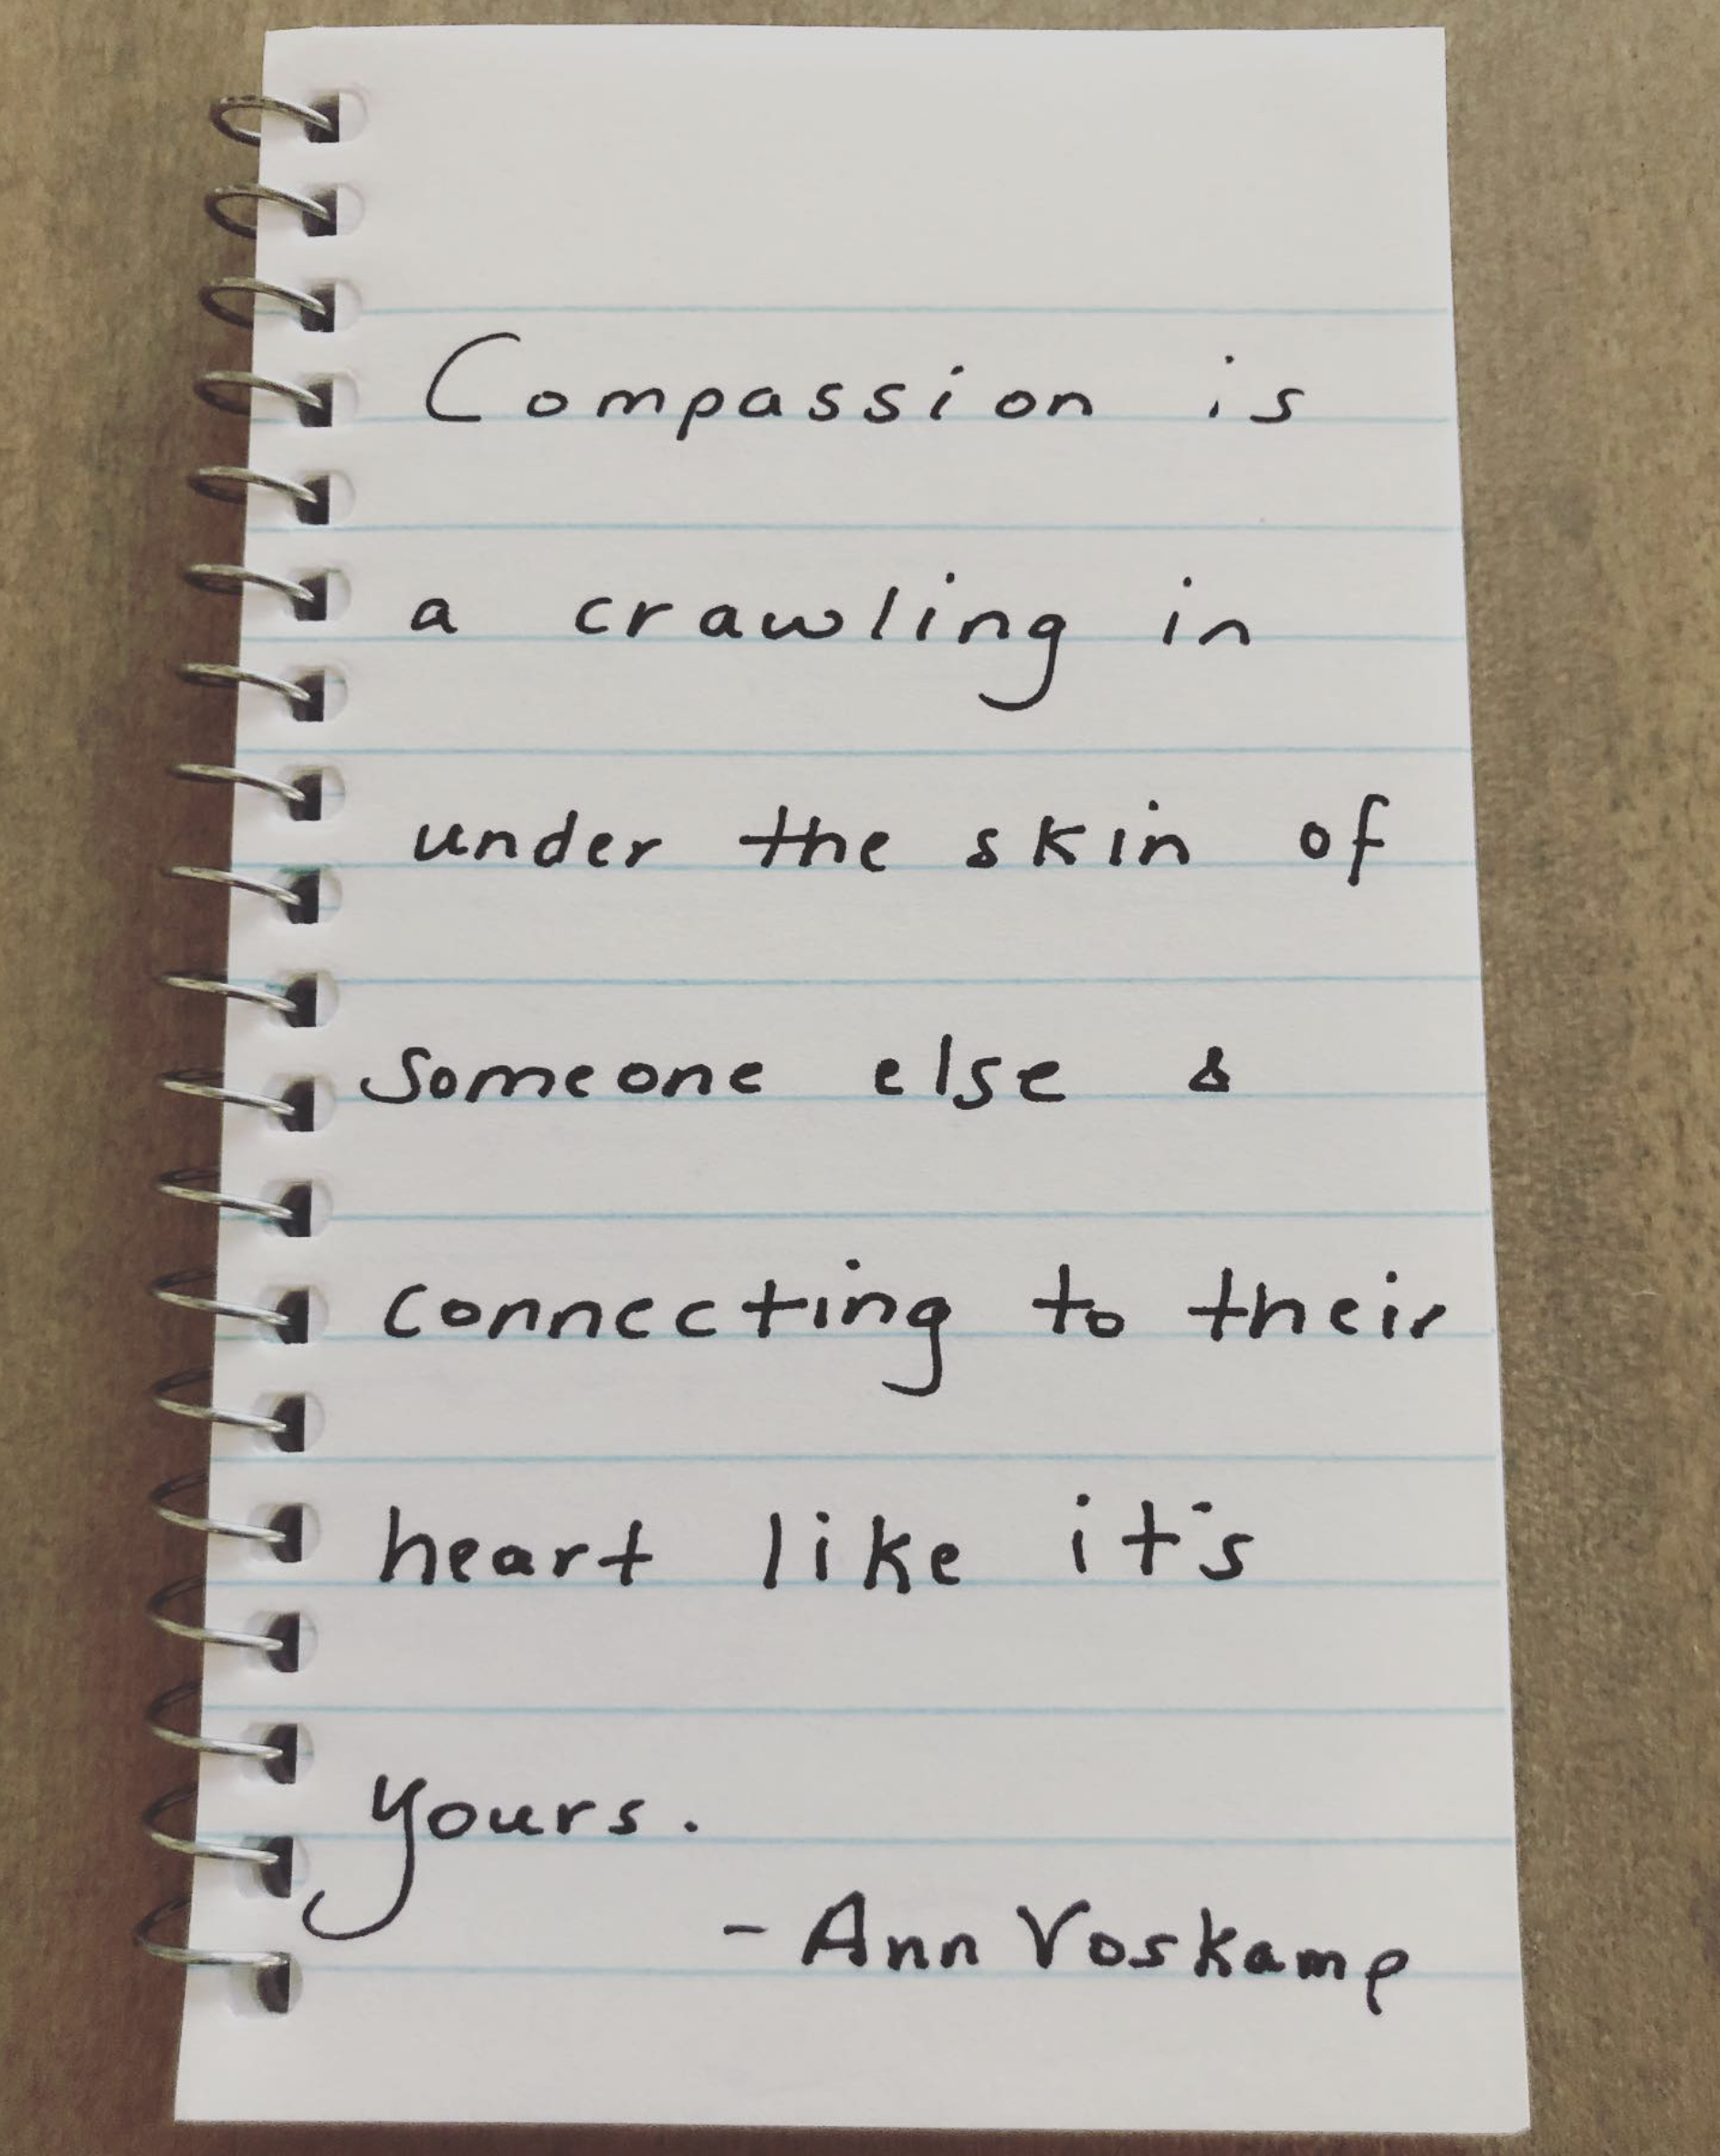 Compassion is
a crawling in
under the skin of
someone else &
connecting to their
heart like it's
yours.
- Ann Voskamp